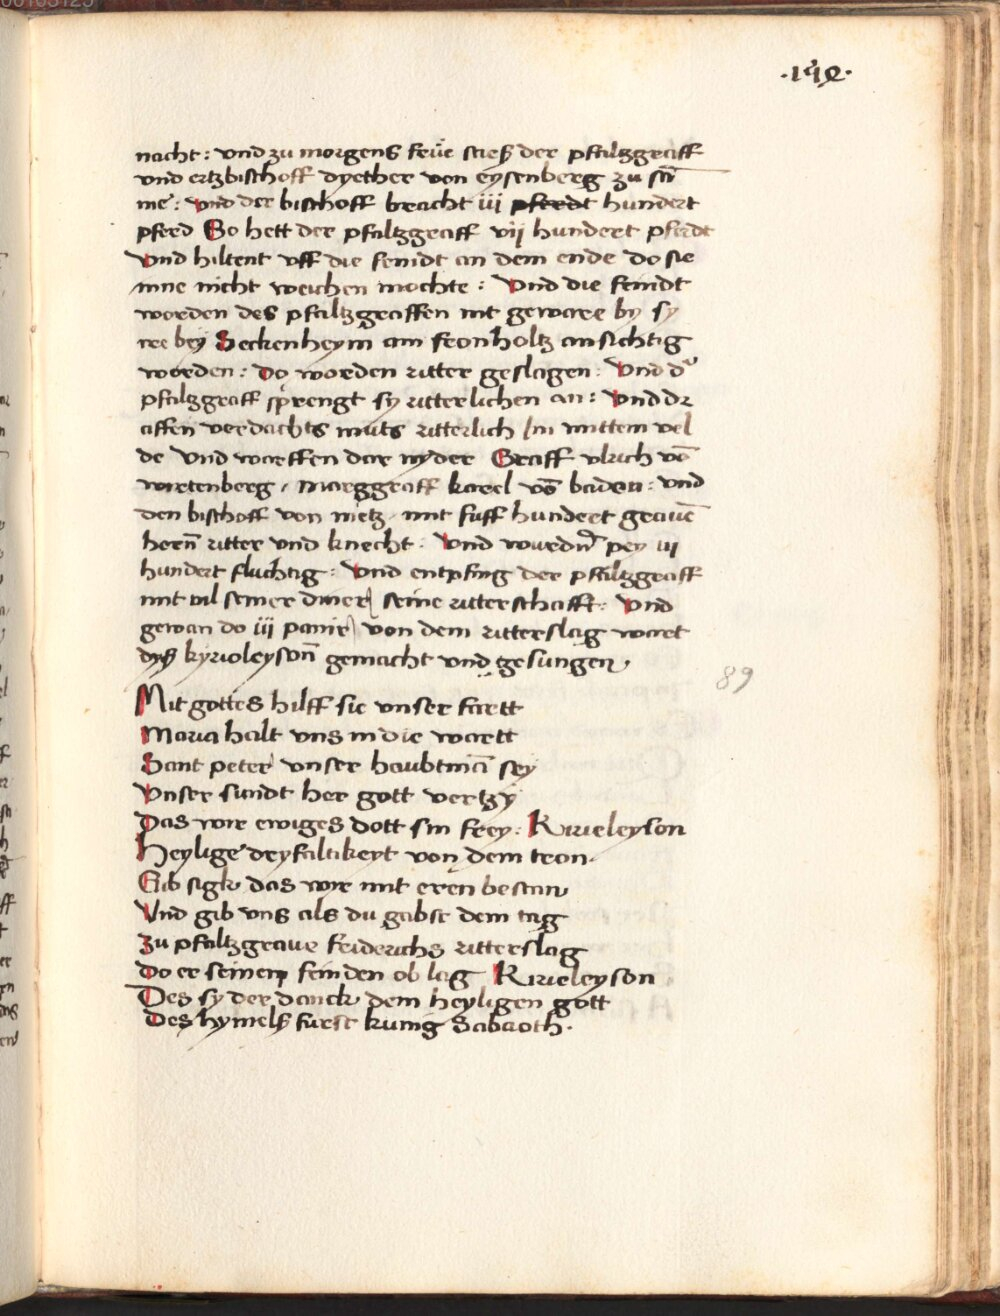 ·142·
nacht: vnd zu morgens frue sties der pfaltzgraff
vnd ertzbischoff dyether von eysenberg zu sā
me: vnd der bischoff bracht iii pferdt hundert
pferd So hett der pfaltzgraff vij hundert pferdt
vnd hiltent vff die feindt an dem ende do sie
inne nicht weichen mochte: Vnd die feindt
worden des pfaltzgraffen nit geware by sy
ree bey Seckenheym am fronholtz ansichtig
worden: Do worden ritter geslagen: Vnd d'
pfaltzgraff sprengt sy ritterlichen an: Vnd dr
affen verdachts muts ritterlich Im wittem vel
de Vnd worffen dar nyder Graff vlrich vō
wirtenberg, Marggraff karel vō baden: vnd
den bischoff von metz mit fuff hundert grauē
hern̄ ritter vnd knecht: Vnd wurdn̄ pey iii
hundert fluchtig: Vnd entpfing der pfaltzgraff
mit vil seiner diner seine ritterschafft: Vnd
gewan do iii panir von dem ritterslag wart
dyß kyrioleyson̄ gemacht vnd gesungen,
89
Mit gottes hilff sie vnser fartt
Maria halt vns in die wartt
Sant peter vnser haubtmā sey
Vnser sundt her gott vertzy
Das wir ewiges dott sin frey: Kirieleyson
Heylige dryfaltikeyt von dem tron
Gib sigk das wir mit eren bestan
Vnd gib vns als du gabst dem tag
Zu pfaltzgraue friderichs ritterslag
Do er seinen feinden ob lag Kirieleyson
Des sy der danck dem heyligen gott
Des hymelß furst kunig Sabaoth.